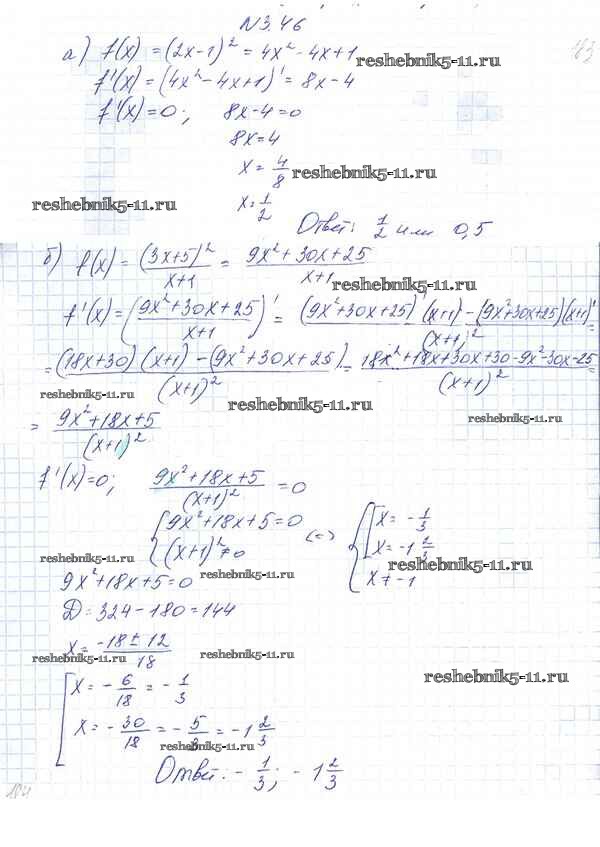 N3.46
а) f(x) = (2x-1)² = 4x² - 4x + 1
reshebnik5-11.ru
f'(x) = (4x² - 4x + 1)' = 8x - 4
f'(x) = 0; 8x - 4 = 0
8x = 4
x = 4/8
reshebnik5-11.ru
reshebnik5-11.ru
x = 1/2
Ответ: 1/2 или 0,5
б) f(x) = (3x+5)²/(x+1) = (9x² + 30x + 25)/(x+1)
reshebnik5-11.ru
f'(x) = ((9x² + 30x + 25)/(x+1))' = ((9x² + 30x + 25)'(x+1) - (9x² + 30x + 25)(x+1)')/(x+1)² =
= ((18x+30)(x+1) - (9x² + 30x + 25))/(x+1)² = (18x² + 18x + 30x + 30 - 9x² - 30x - 25)/(x+1)² =
reshebnik5-11.ru
reshebnik5-11.ru
reshebnik5-11.ru
= (9x² + 18x + 5)/(x+1)²
f'(x) = 0; (9x² + 18x + 5)/(x+1)² = 0
{ 9x² + 18x + 5 = 0
(x+1)² ≠ 0
<=> { [ x = -1/3
x = -1 2/3
x ≠ -1
reshebnik5-11.ru
reshebnik5-11.ru
reshebnik5-11.ru
9x² + 18x + 5 = 0
D = 324 - 180 = 144
x = (-18 ± 12)/18
reshebnik5-11.ru
reshebnik5-11.ru
reshebnik5-11.ru
[ x = -6/18 = -1/3
x = -30/18 = -5/3 = -1 2/3
reshebnik5-11.ru
Ответ: -1/3; -1 2/3